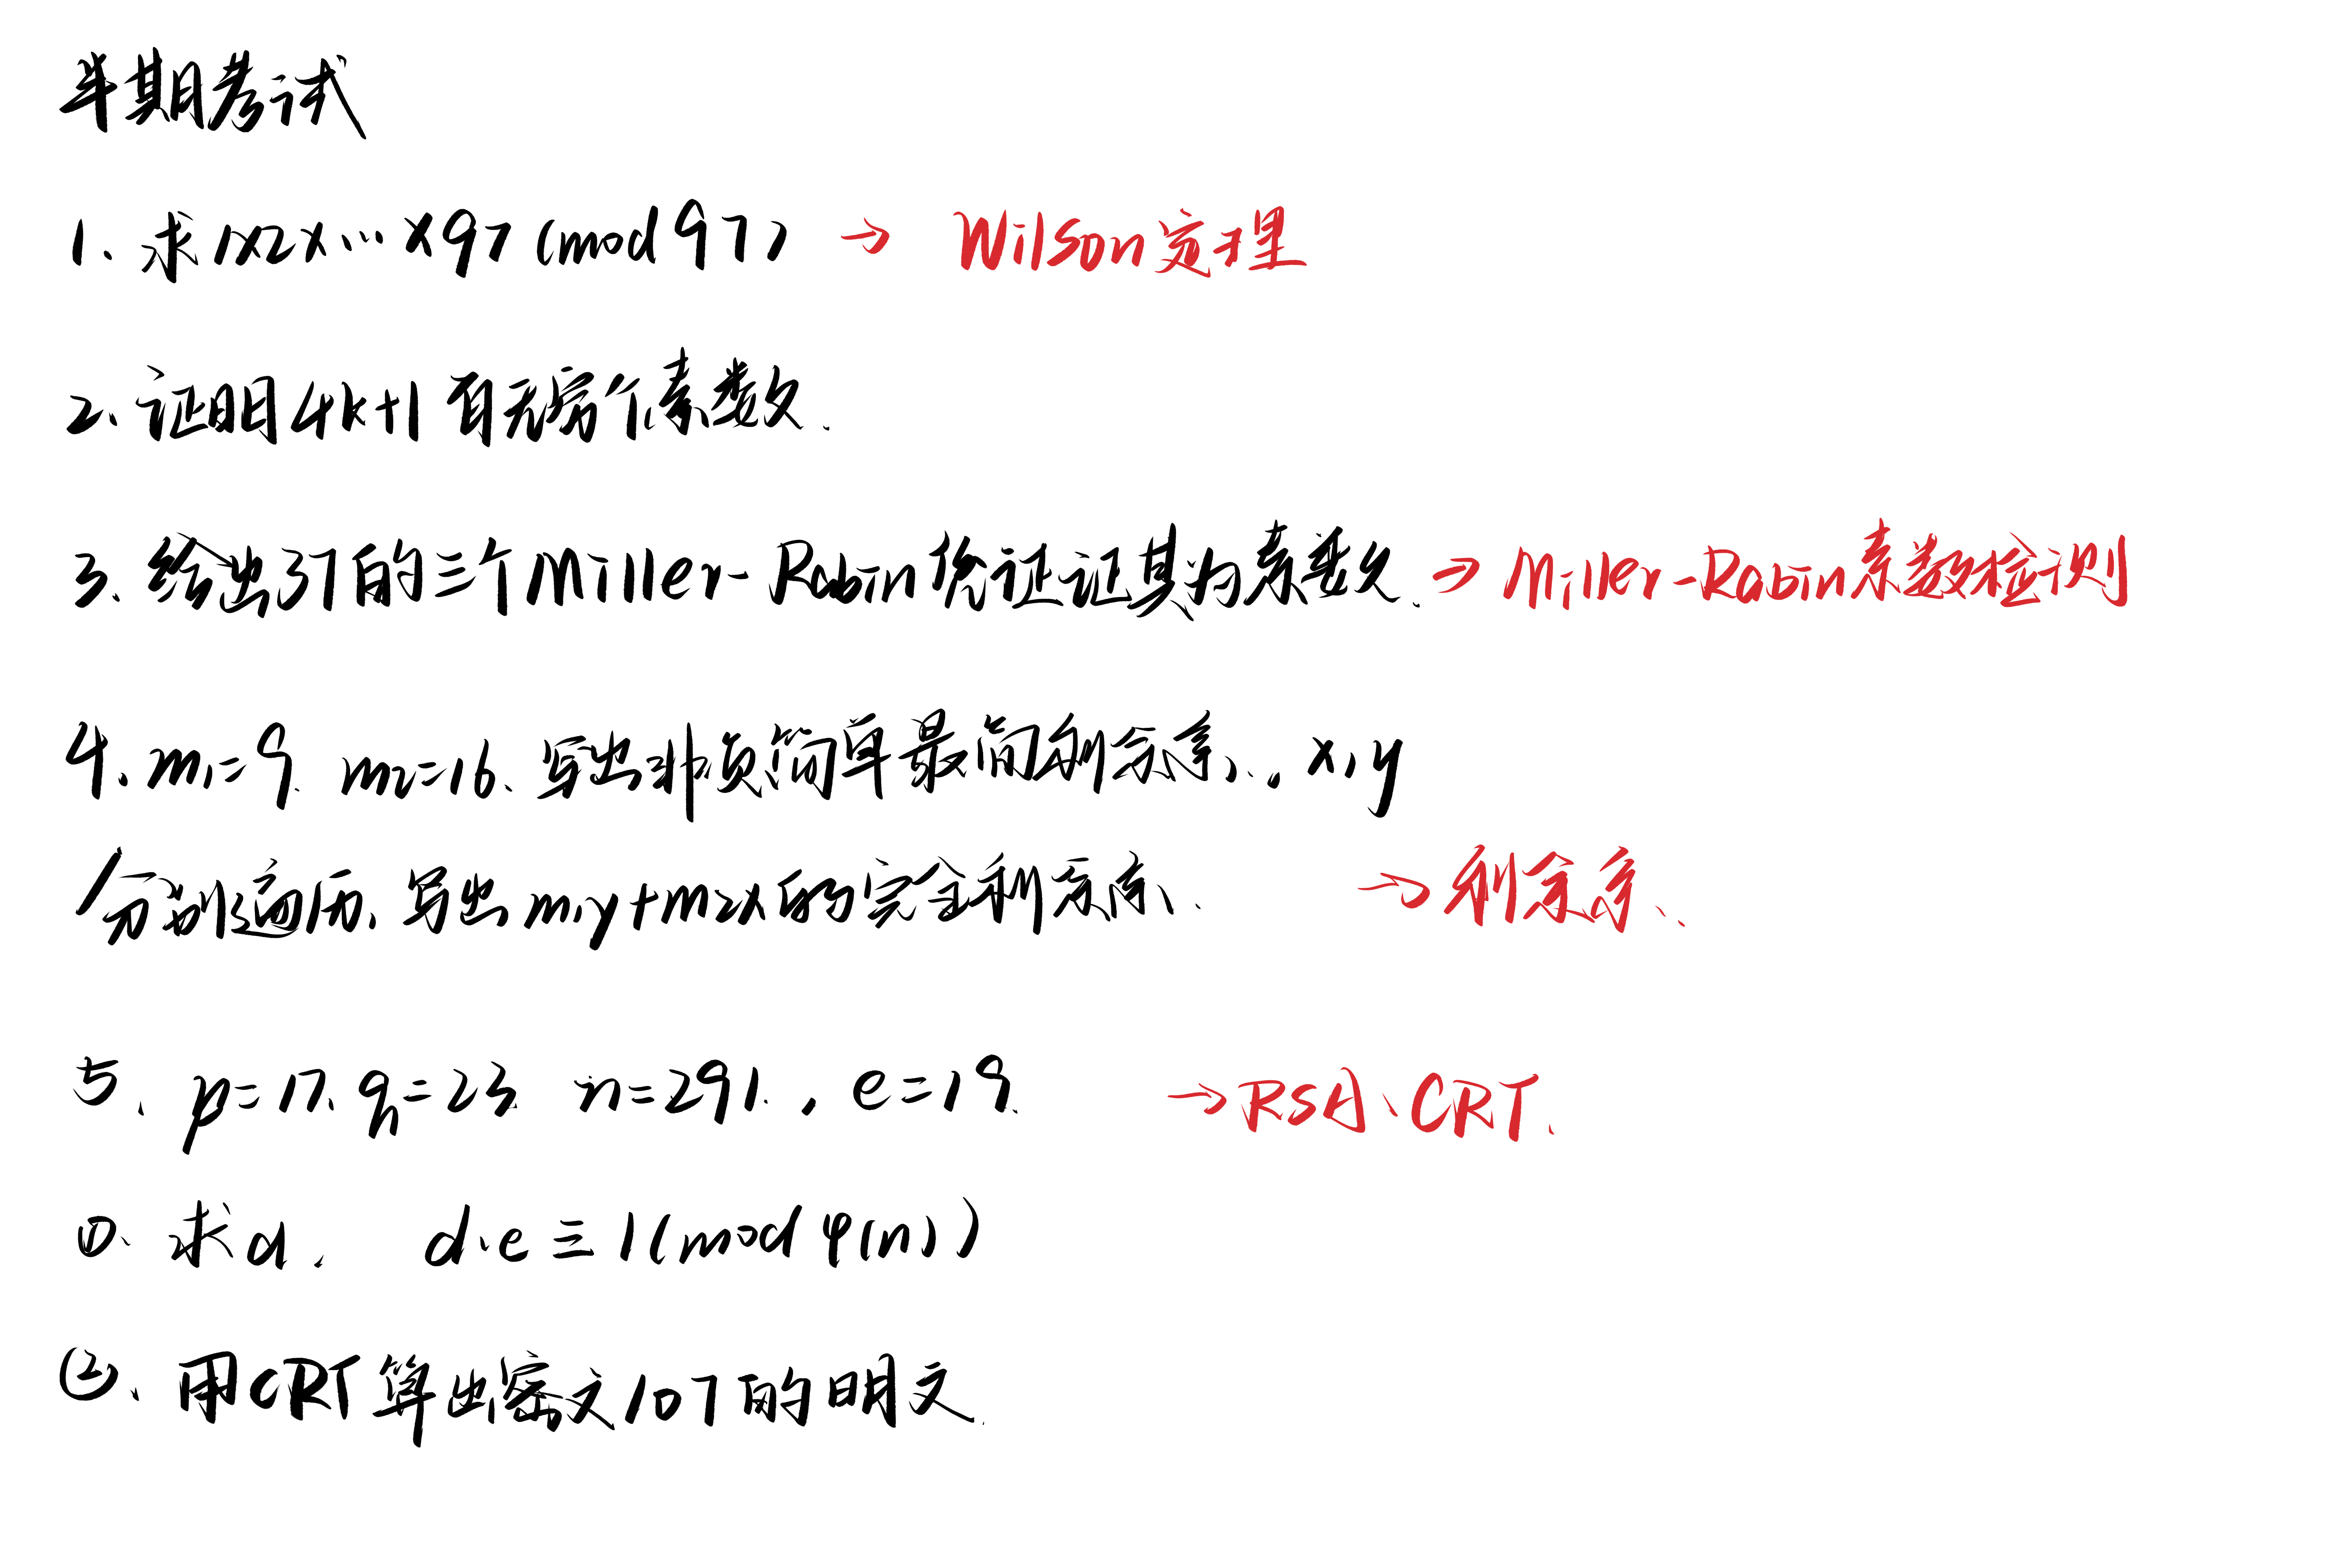 半期考试
1. 求1×2×…×97(mod 97) → Wilson定理
2. 证明4k+1有无穷个素数.
3. 给出37的三个Miller-Rabin凭证证其为素数. → Miller-Rabin素数检测
4. m₁=9. m₂=16. 写出非负简单最简剩余系., x,y
分别遍历. 写出m₁y+m₂x的完全剩余系. → 剩余系.
5. p=17. q=23 n=291. , e=19. → RSA、CRT.
①. 求d. d·e≡1(mod φ(n))
②. 用CRT算出密文107的明文.